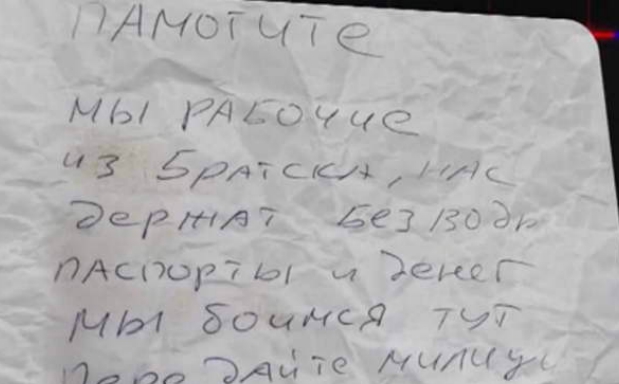 ПАМОГИТЕ
МЫ РАБОЧИЕ
ИЗ БРАТСКА, НАС
ДЕРЖАТ БЕЗ ВОДЫ
ПАСПОРТЫ И ДЕНЕГ
МЫ БОИМСЯ ТУТ
ПЕРЕДАЙТЕ